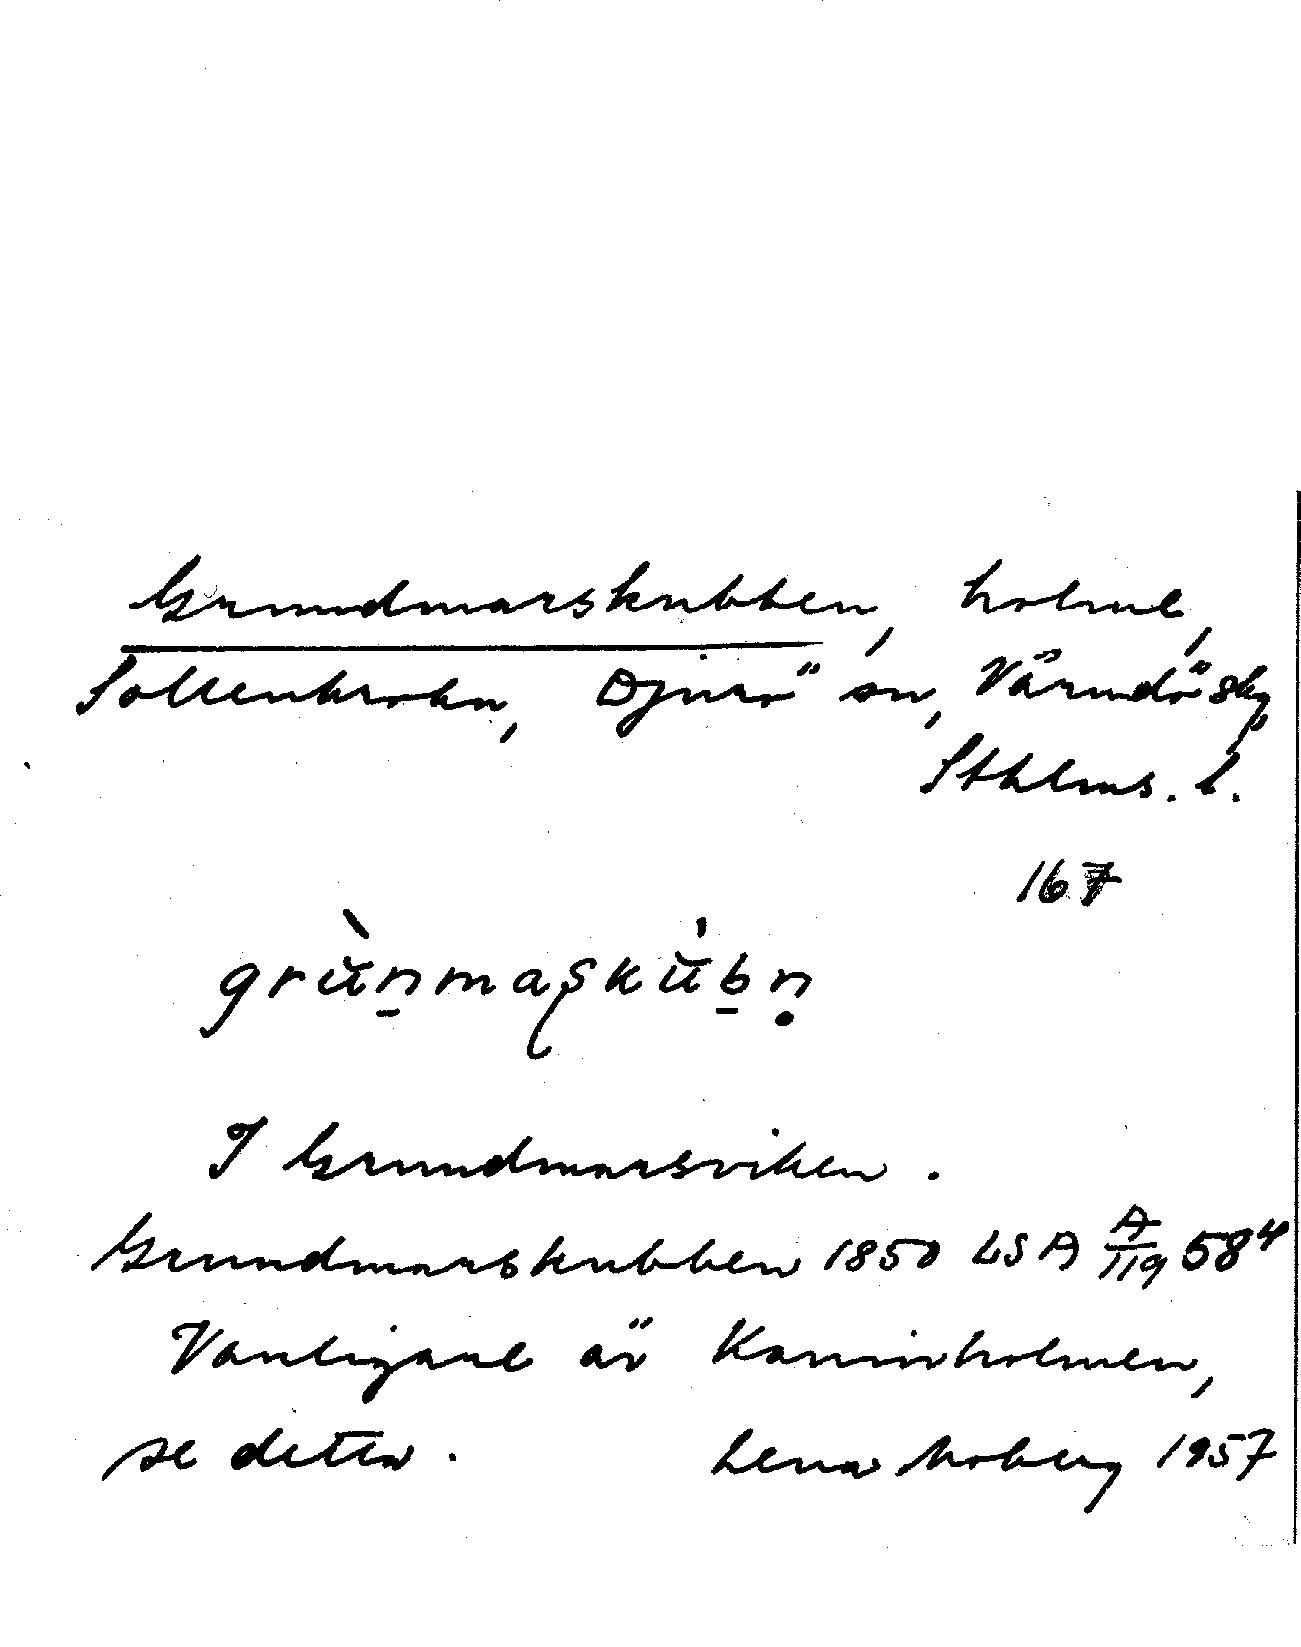 Grundmarskubben, holme,
Sollenkroka, Djurö sn, Värmdö skg
Sthlms. l.
167
grùn̠maʂkùb̠ṇ
I Grundmarsviken.
Grundmarskubben 1850 LSA A/119 58⁴
Vanligare är Kaninholmen,
se detta. Lena Moberg 1957